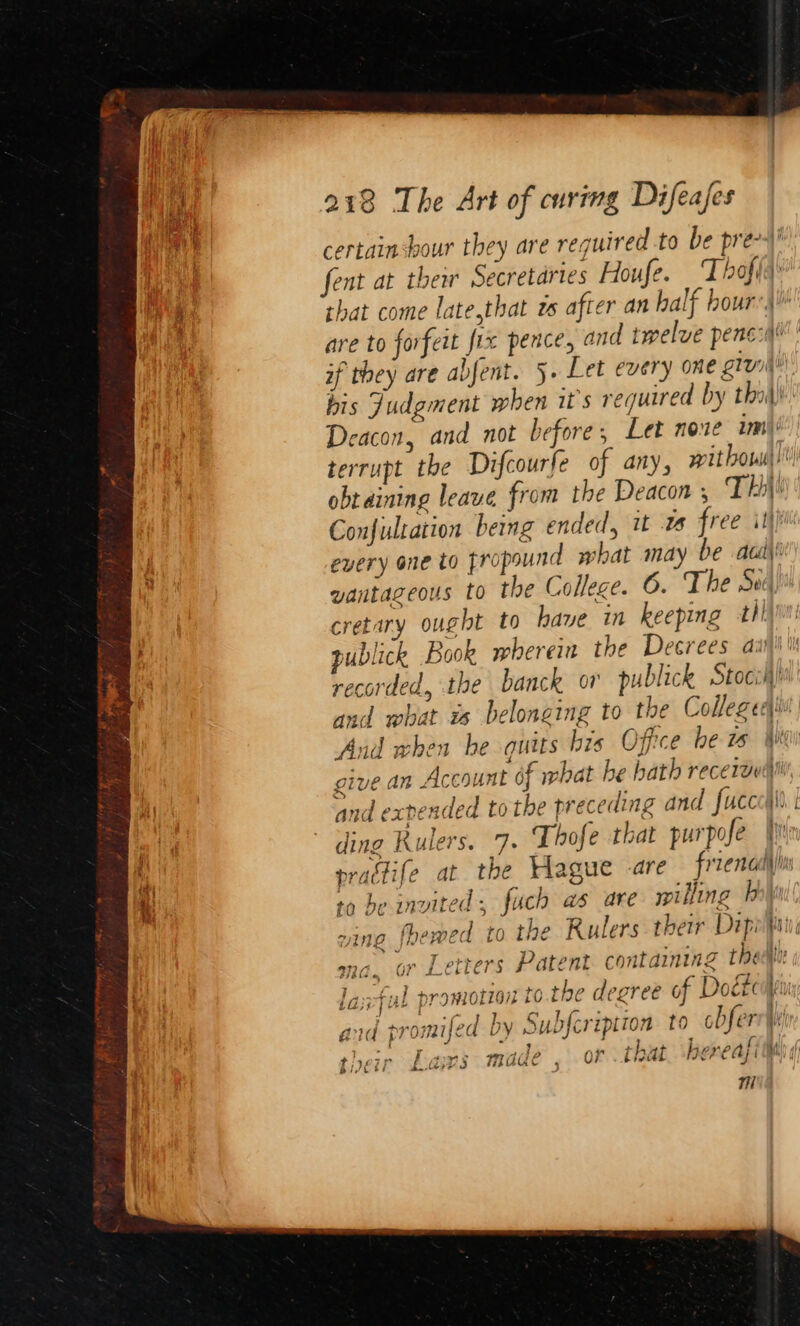 218 The Art of curing Difeafes
certain hour they are required to be pre-
fent at their Secretaries Houfe. Thof
that come late, that is after an half hour
are to forfeit fix pence, and twelve penc
if they are abfent. 5. Let every one giv
his Judgment when it's required by th
Deacon, and not before; Let none in
terrupt the Difcourfe of any, withou
obtaining leave from the Deacon; Th
Confultation being ended, it is free
every one to propound what may be ad
vantageous to the College. 6. The Se
cretary ought to have in keeping th
publick Book wherein the Decrees a
recorded, the banck or publick Stoc
and what is belonging to the College
And when he quits his Office he is
give an Account of what he hath receiv
and expended to the preceding and fucc
ding Rulers. 7. Thofe that purpofe
practife at the Hague are friend
to be invited; fuch as are willing h
ving fhewed to the Rulers their Dip
ma, or Letters Patent containing the
lawful promotion to the degree of Docto
and promifed by Subfcription to obfer
their Laws made, or that hereaf
m